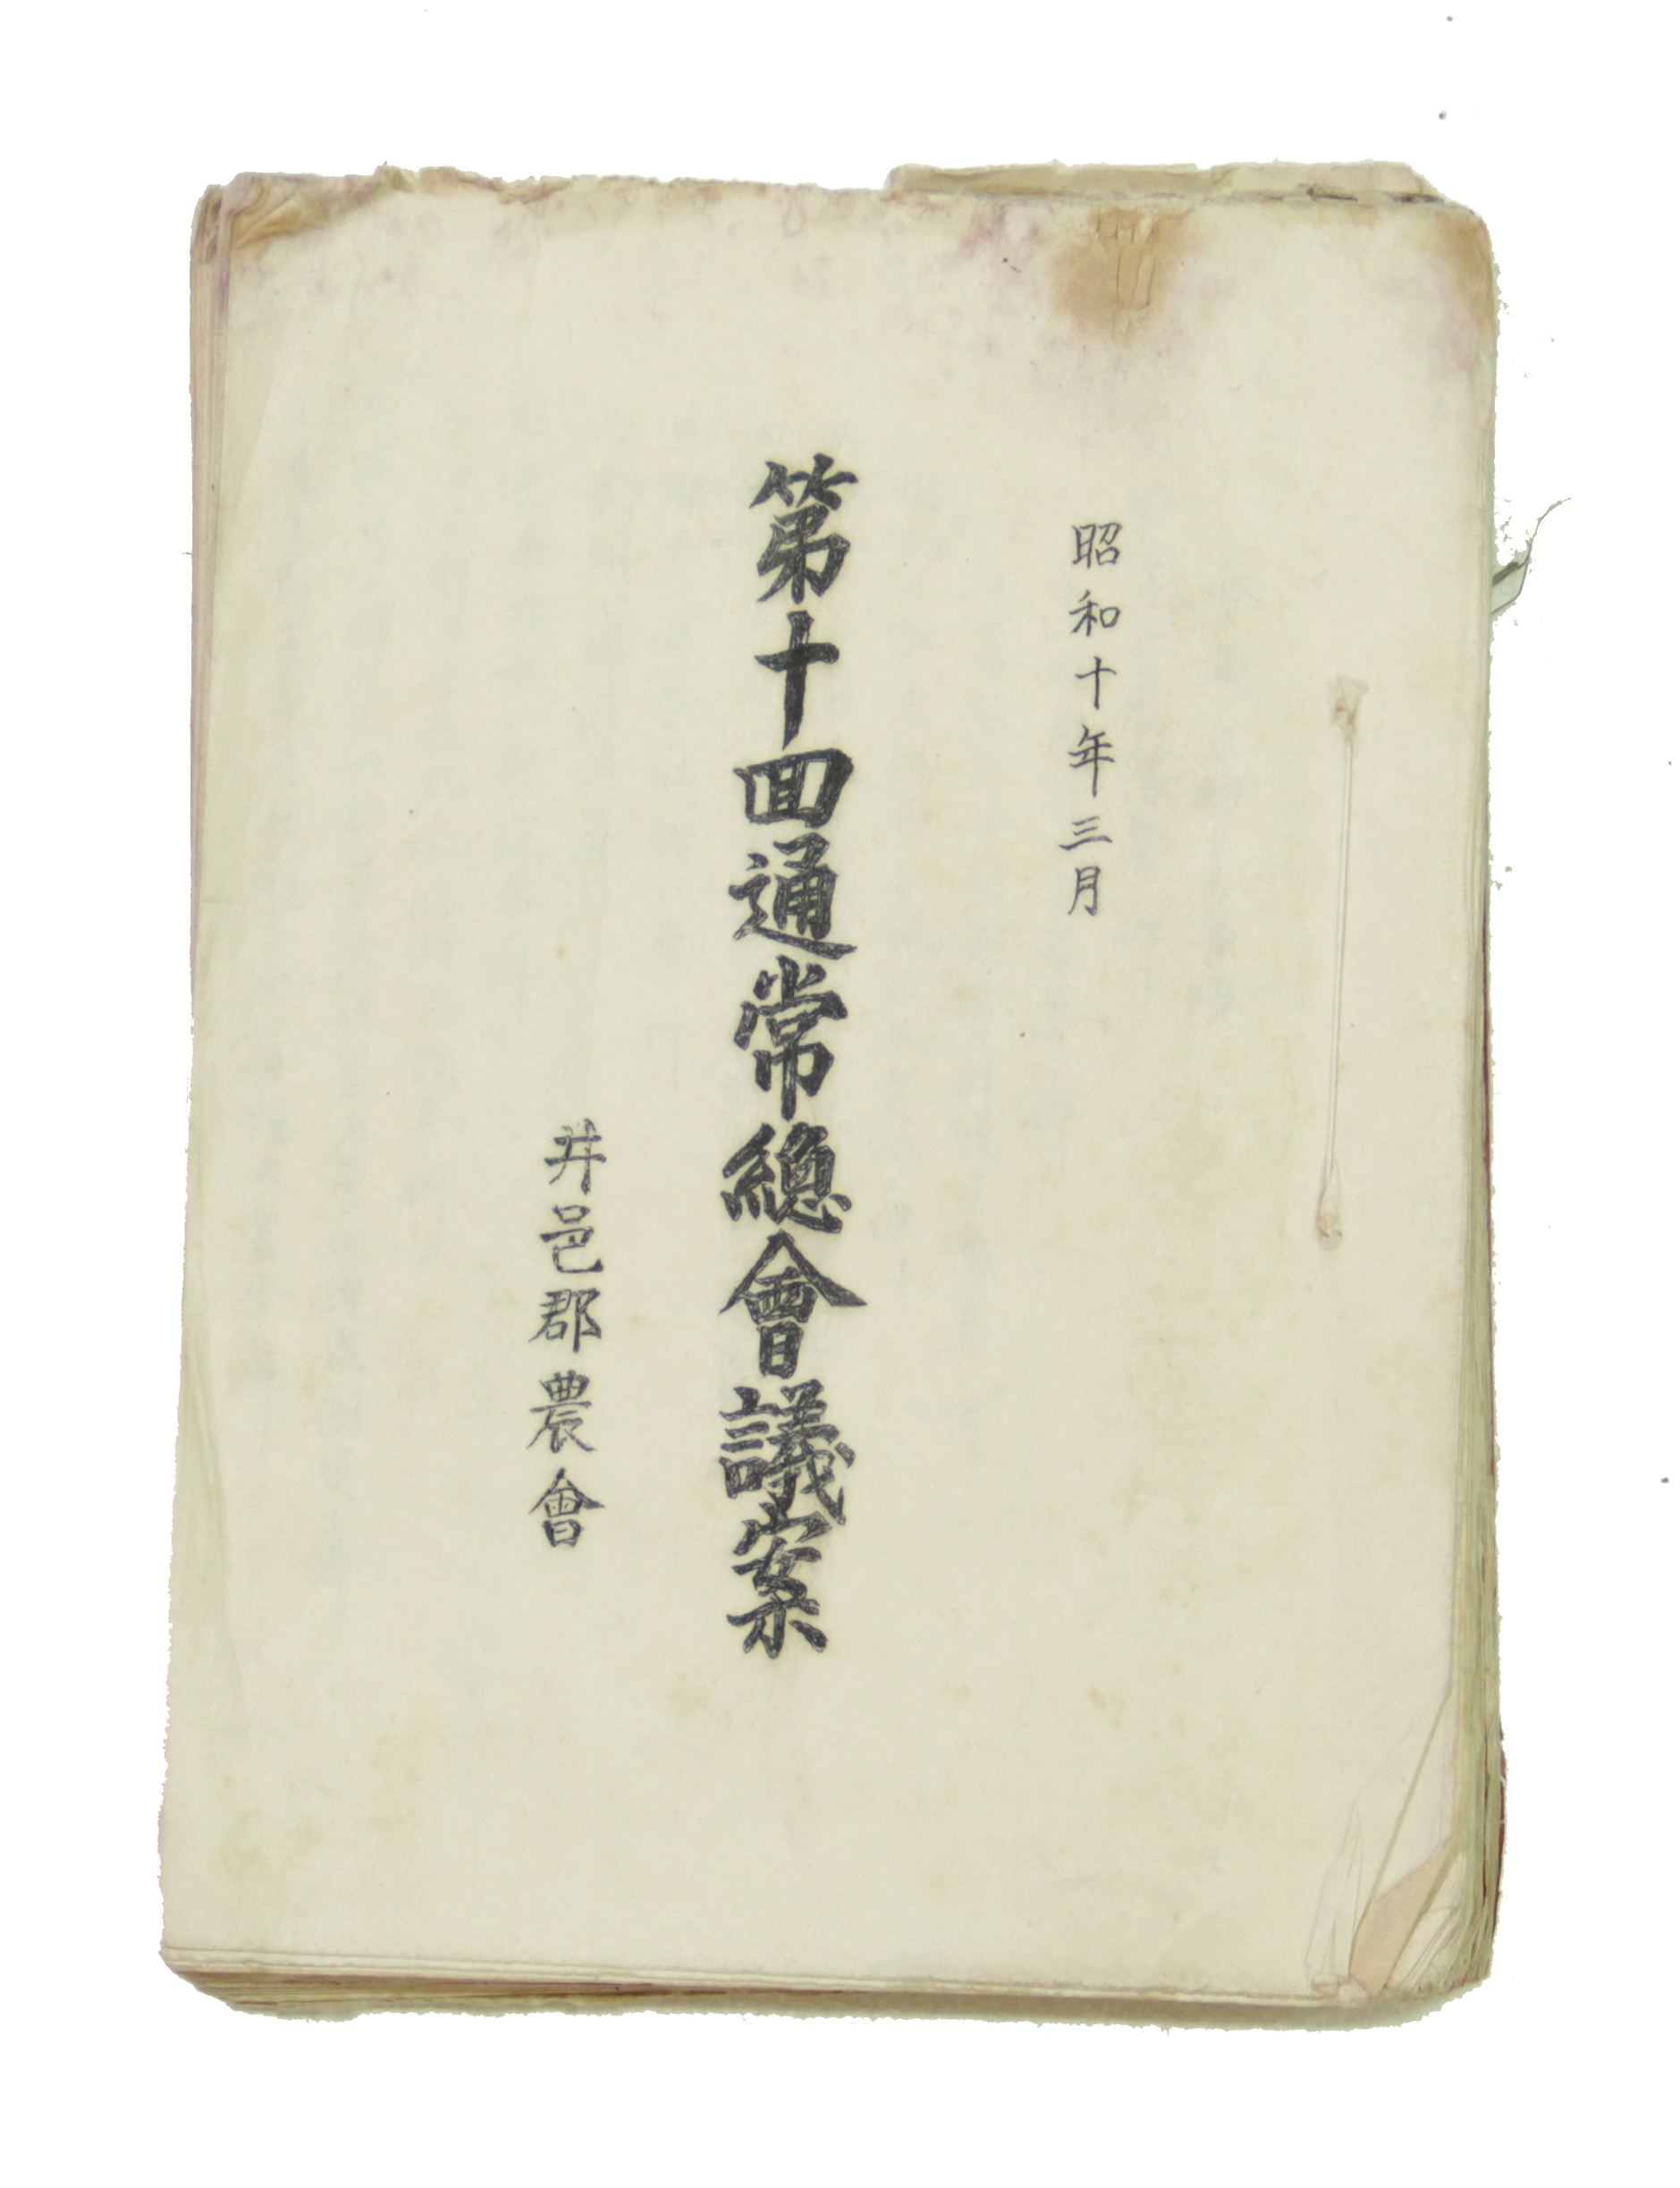 昭和十年三月
第十回通常總會議案
井邑郡農會